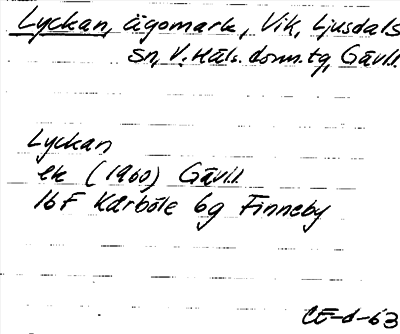 Lyckan, ägomark, Vik, Ljusdals
sn, V. Häls. doms.tg, Gävl.
Lyckan
ek (1960) Gävl.
16F Kårböle 6g Finneby
CE-d-63